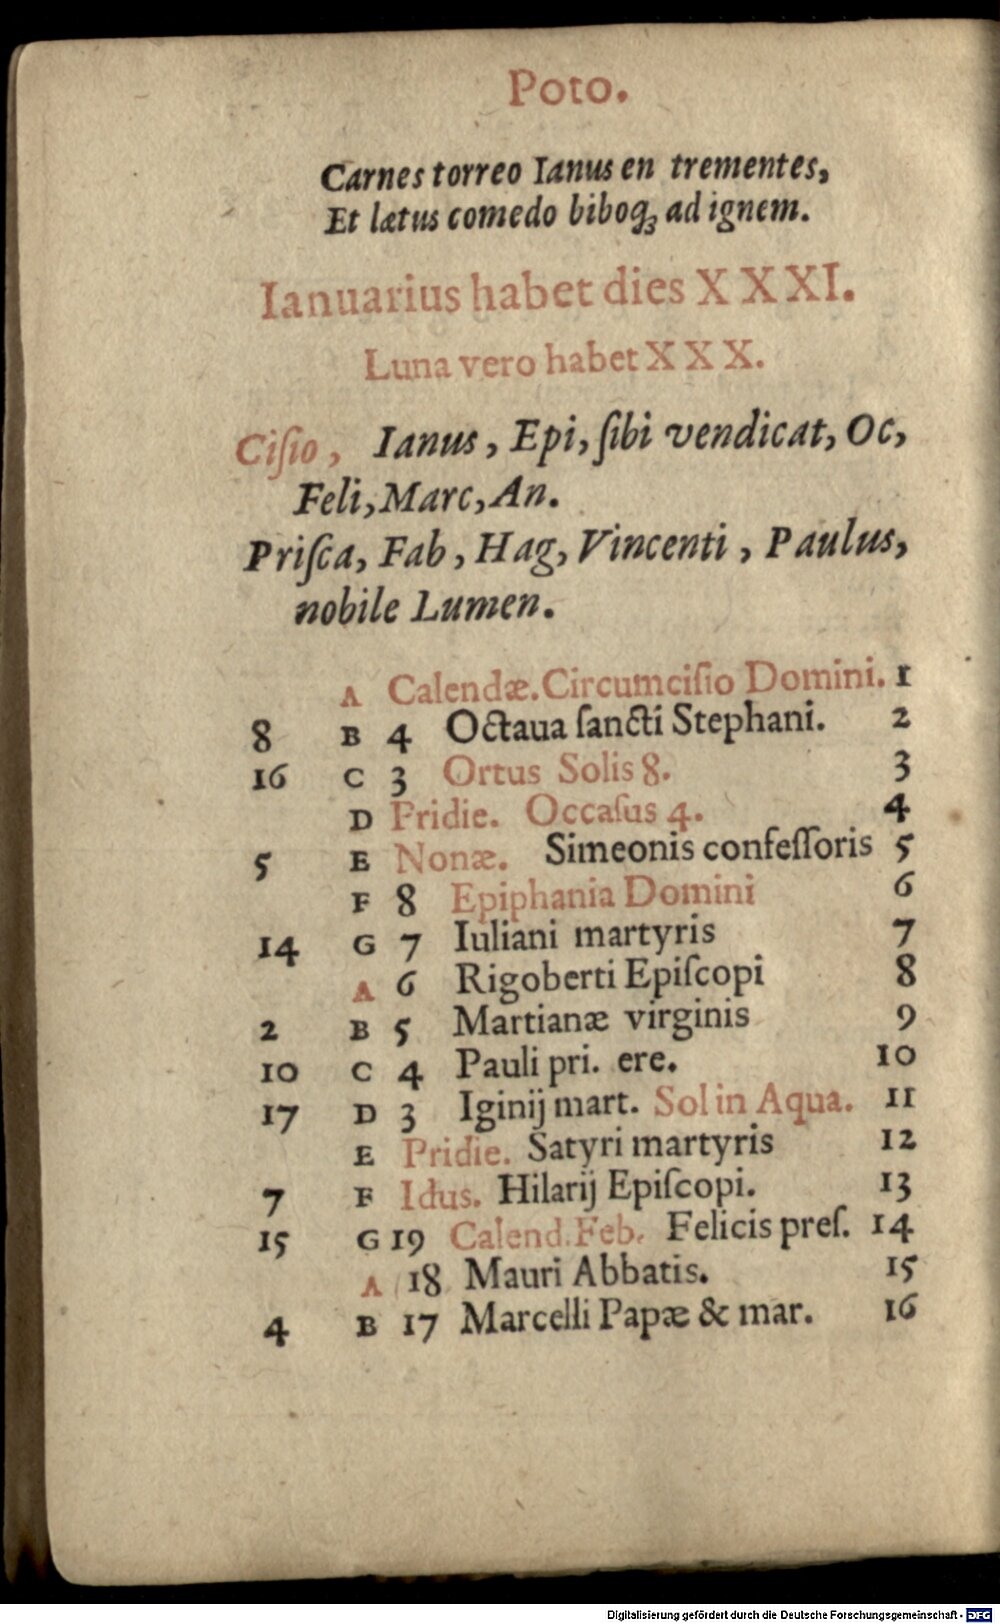 Poto.
Carnes torreo Ianus en trementes,
Et lætus comedo biboqꝫ ad ignem.
Ianuarius habet dies XXXI.
Luna vero habet XXX.
Ciſio, Ianus, Epi, ſibi vendicat, Oc,
Feli, Marc, An.
Priſca, Fab, Hag, Vincenti, Paulus,
nobile Lumen.
A Calendæ. Circumciſio Domini. 1
8 B 4 Octaua ſancti Stephani. 2
16 C 3 Ortus Solis 8. 3
D Pridie. Occaſus 4. 4
5 E Nonæ. Simeonis confeſſoris 5
F 8 Epiphania Domini 6
14 G 7 Iuliani martyris 7
A 6 Rigoberti Epiſcopi 8
2 B 5 Martianæ virginis 9
10 C 4 Pauli pri. ere. 10
17 D 3 Iginij mart. Sol in Aqua. 11
E Pridie. Satyri martyris 12
7 F Idus. Hilarij Epiſcopi. 13
15 G 19 Calend. Feb. Felicis preſ. 14
A 18 Mauri Abbatis. 15
4 B 17 Marcelli Papæ & mar. 16
Digitalisierung gefördert durch die Deutsche Forschungsgemeinschaft - DFG